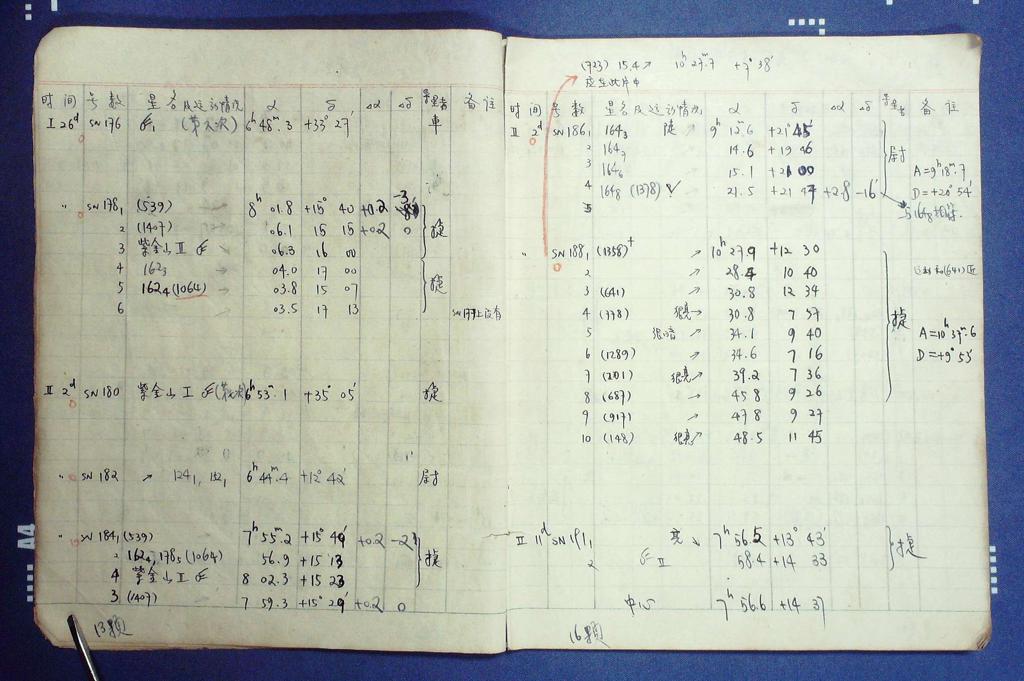 时间 号数 星名及运动情况 α δ Δα Δδ 备注
I 26d SN 176 (第六次) 6h 48m.3 +33° 27′ 車
" SN 178₁ (539) 8h 01.8 +15° 40 +0.2 -3 捷
2 (1407) 06.1 15 15 +0.2 0
3 紫金山 II 06.3 16 00
4 162₃ 04.0 17 00 捷
5 162₄ (1064) 03.8 15 07
6 03.5 17 13
II 2d SN 180 紫金山 I 6h 53m.1 +35° 05′ 捷
" SN 182 ↗ 124₁, 132₁ 6h 44m.4 +12° 42′
" SN 184₁ (539) 7h 55m.2 +15° 49′ +0.2 -2′ 捷
2 162₄, 178₅ (1064) 56.9 +15 13
4 紫金山 I 8 02.3 +15 23
3 (1407) 7 59.3 +15° 29′ +0.2 0
13颗
(723) 15.4 ↗ 10h 27m.7 +7° 38′
应在此片中
时间 号数 星名及运动情况 α δ Δα Δδ 备注
II 2d SN 186₁ 164₃ 9h 12m.6 +21° 45′
2 164₇ 14.6 +19 46
3 164₆ 15.1 +21 00 A=9h 18m.7
4 164₈ (1378) ✓ 21.5 +21 47 +2.8 -16′ D=+20° 54′
5
" SN 188₁ (1358)† 10h 27m.9 +12 30
2 28.4 10 40
3 (641) 30.8 12 34
4 (778) 很亮↗ 30.8 7 57 捷
5 很暗 ↗ 34.1 9 40 A=10h 37m.6
6 (1289) ↗ 34.6 7 16 D=+9° 53′
7 (201) 很亮↗ 39.2 7 36
8 (687) ↗ 45.8 9 26
9 (917) ↗ 47.8 9 27
10 (148) 很亮↗ 48.5 11 45
II 11d SN 191₁ 亮 ↘ 7h 56m.5 +13° 43′ 捷
2 II 58.4 +14 33
中心 7h 56.6 +14 37
16颗
A4